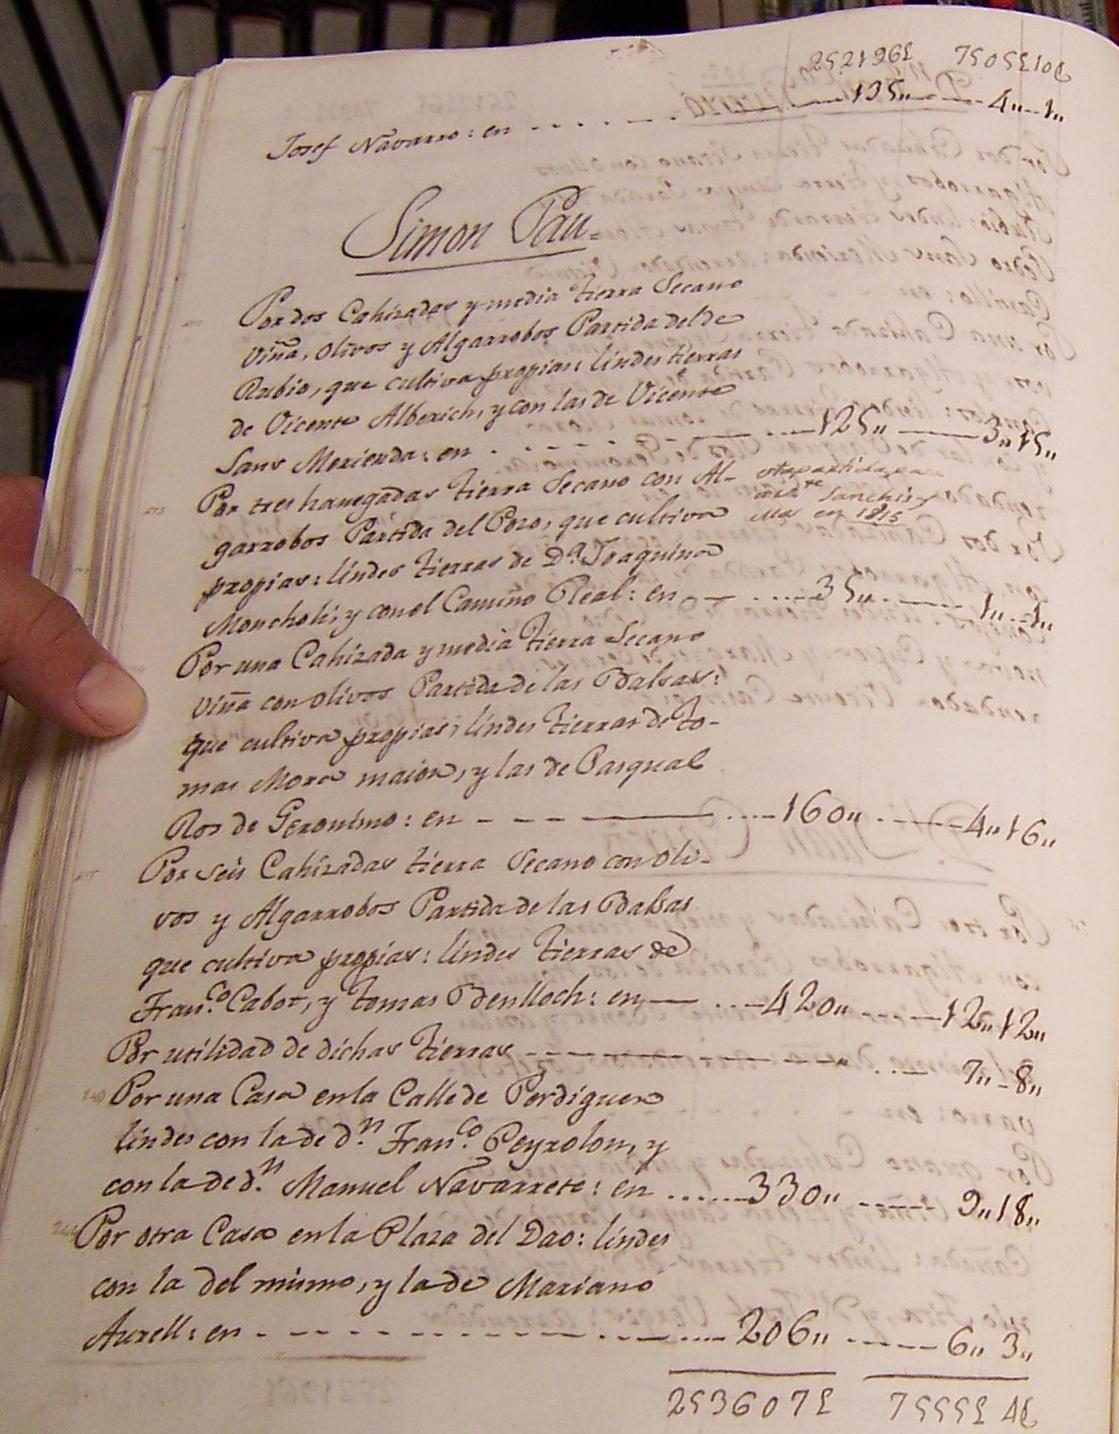 252196£ 75055£10
Josef Navarro: en - - - - - - 135,, - - - 4,,-1,,
Simon Pau=
Por dos Cahizadas y media tierra Secano
viña, olivos y Algarrobos Partida del de
Rubio, que cultiva propias: lindes tierras
de Vicente Alberich, y con las de Vicente
Sans Merienda: en - - - - 125,, - - - 3,,15,,
Por tres hanegadas tierra Secano con Al-
garrobos Partida del Pozo, que cultiva
propias: lindes tierras de D.ª Joaquina
Moncholi, y con el Camino Real: en - - - 35,, - - - 1,,-1,,
esta partida
Sanchis y
Mas en 1815
Por una Cahizada y media tierra Secano
viña con olivos Partida de las Balsas:
que cultiva propias; lindes tierras de To-
mas Mora maior, y las de Pasqual
Ros de Geronimo: en - - - 160,, - - - 4,,16,,
Por seis Cahizadas tierra Secano con oli-
vos y Algarrobos Partida de las Balsas
que cultiva propias: lindes tierras de
Fran.co Cabot, y tomas Benlloch: en - - - 420,, - - - 12,,12,,
Por utilidad de dichas tierras - - - - - - 7,,-8,,
Por una Casa en la Calle de Perdiguer
lindes con la de d.n Fran.co Peyrolon, y
con la de d.n Manuel Navarrete: en - - - 330,, - - - 9,,18,,
Por otra Casa en la Plaza del Dao: lindes
con la del mismo, y la de Mariano
Aurell: en - - - - - - 206,, - - - 6,, 3,,
253607£ 75555£4